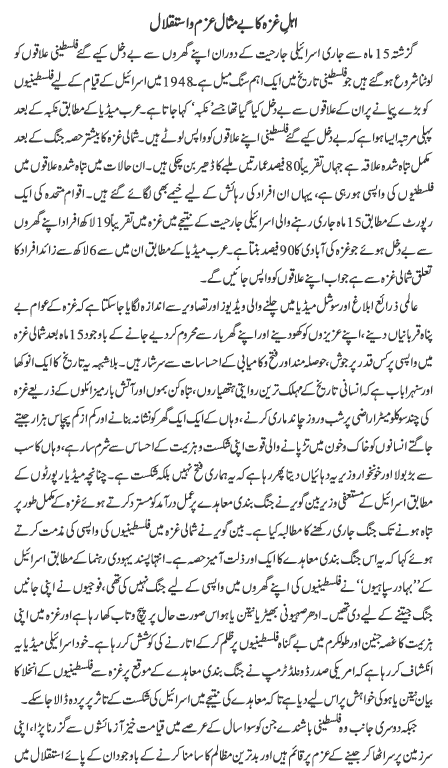 اہلِ غزہ کا بے مثال عزم و استقلال
گزشتہ 15 ماہ سے جاری اسرائیلی جارحیت کے دوران اپنے گھروں سے بے دخل کیے گئے فلسطینی علاقوں کو
لوٹنا شروع ہو گئے ہیں جو فلسطینی تاریخ میں ایک اہم سنگ میل ہے۔ 1948 میں اسرائیل کے قیام کے لیے فلسطینیوں
کو بڑے پیمانے پر ان کے علاقوں سے بے دخل کیا گیا تھا جسے ’نکبہ‘ کہا جاتا ہے۔ عرب میڈیا کے مطابق نکبہ کے بعد
پہلی مرتبہ ایسا ہوا ہے کہ بے دخل کیے گئے فلسطینی اپنے علاقوں کو واپس لوٹے ہیں۔ شمالی غزہ کا بیشتر حصہ جنگ کے بعد
مکمل تباہ شدہ علاقہ ہے جہاں تقریباً 80 فیصد عمارتیں ملبے کا ڈھیر بن چکی ہیں۔ ان حالات میں تباہ شدہ علاقوں میں
فلسطینیوں کی واپسی ہو رہی ہے، یہاں ان افراد کی رہائش کے لیے خیمے بھی لگائے گئے ہیں۔ اقوام متحدہ کی ایک
رپورٹ کے مطابق 15 ماہ جاری رہنے والی اسرائیلی جارحیت کے نتیجے میں غزہ میں تقریباً 19 لاکھ افراد اپنے گھروں
سے بے دخل ہوئے جو غزہ کی آبادی کا 90 فیصد بنتا ہے۔ عرب میڈیا کے مطابق ان میں سے 6 لاکھ سے زائد افراد کا
تعلق شمالی غزہ سے ہے جو اب اپنے علاقوں کو واپس جائیں گے۔
عالمی ذرائع ابلاغ اور سوشل میڈیا میں چلنے والی ویڈیوز اور تصاویر سے اندازہ لگایا جا سکتا ہے کہ غزہ کے عوام بے
پناہ قربانیاں دینے، اپنے عزیزوں کو کھو دینے اور اپنے گھر بار سے محروم کر دیے جانے کے باوجود 15 ماہ بعد شمالی غزہ
میں واپسی پر کس قدر پرجوش، حوصلہ مند اور فتح و کامیابی کے احساسات سے سرشار ہیں۔ بلاشبہ یہ تاریخ کا ایک انوکھا
اور سنہرا باب ہے کہ انسانی تاریخ کے مہلک ترین روایتی ہتھیاروں، تباہ کن بموں اور آتش بار میزائلوں کے ذریعے غزہ
کی چند سو کلومیٹر اراضی پر شب و روز چاند ماری کرنے، وہاں کے ایک ایک گھر کو نشانہ بنانے اور کم از کم پچاس ہزار جیتے
جاگتے انسانوں کو خاک و خون میں تڑپانے والی قوت اپنی شکست و ہزیمت کے احساس سے شرم سار ہے، وہاں کا سب
سے بڑبولا اور خونخوار وزیر یہ دہائیاں دیتا پھر رہا ہے کہ یہ ہماری فتح نہیں بلکہ شکست ہے۔ چنانچہ میڈیا رپورٹوں کے
مطابق اسرائیل کے مستعفی وزیر بین گویر نے جنگ بندی معاہدے پر عمل درآمد کو مسترد کرتے ہوئے غزہ کے مکمل طور پر
تباہ ہونے تک جنگ جاری رکھنے کا مطالبہ کیا ہے۔ بین گویر نے شمالی غزہ میں فلسطینیوں کی واپسی کی مذمت کرتے
ہوئے کہا کہ یہ اس جنگ بندی معاہدے کا ایک اور ذلت آمیز حصہ ہے۔ انتہاپسند یہودی رہنما کے مطابق اسرائیل کے
’’بہادر سپاہیوں‘‘ نے فلسطینیوں کی اپنے گھروں میں واپسی کے لیے جنگ نہیں کی تھی، فوجیوں نے اپنی جانیں
جنگ جیتنے کے لیے دی تھیں۔ ادھر صہیونی بھیڑیا نیتن یاہو اس صورت حال پر پیچ و تاب کھا رہا ہے اور غزہ میں اپنی
ہزیمت کا غصہ جنین اور طولکرم میں بے گناہ فلسطینیوں پر ظلم کر کے اتارنے کی کوشش کر رہا ہے۔ خود اسرائیلی میڈیا یہ
انکشاف کر رہا ہے کہ امریکی صدر ڈونلڈ ٹرمپ نے جنگ بندی معاہدے کے موقع پر غزہ سے فلسطینیوں کے انخلا کا
بیان نیتن یاہو کی خواہش پر اس لیے دیا ہے تاکہ معاہدے کے نتیجے میں اسرائیل کی شکست کے تاثر پر پردہ ڈالا جا سکے۔
جبکہ دوسری جانب وہ فلسطینی باشندے جن کو سوا سال کے عرصے میں قیامت خیز آزمائشوں سے گزرنا پڑا، اپنی
سرزمین پر سر اٹھا کر جینے کے عزم پر قائم ہیں اور بدترین مظالم کا سامنا کرنے کے باوجود ان کے پائے استقلال میں